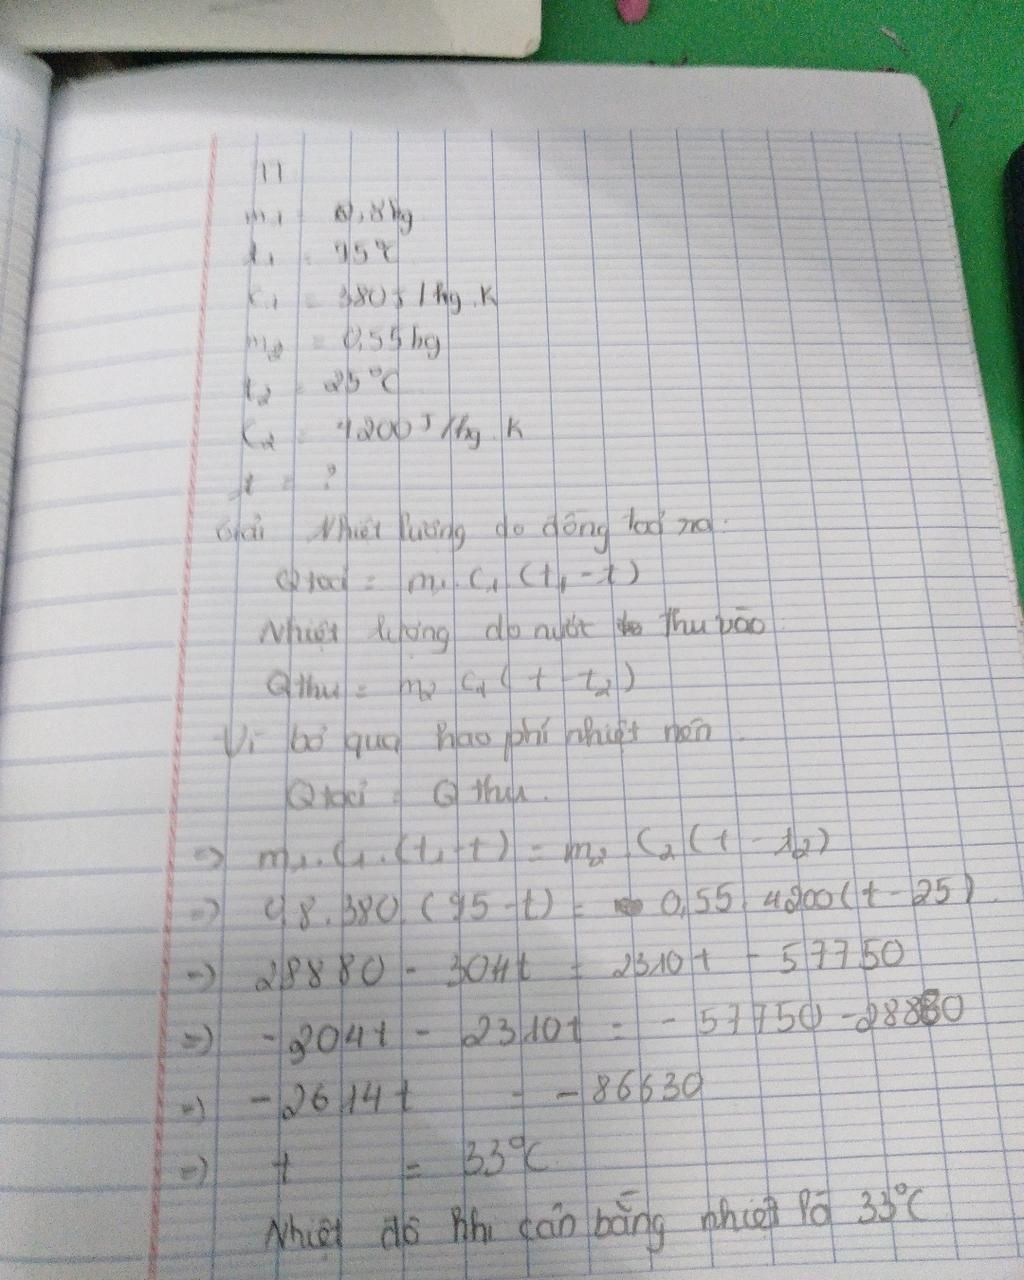 11
m₁ = 0,8kg
t₁ = 95℃
C₁ = 380 J/kg.K
m₂ = 0,55kg
t₂ = 25°C
C₂ = 4200 J/kg.K
t = ?
Giải Nhiệt lượng do đồng toả ra:
Qtoả = m₁.C₁(t₁-t)
Nhiệt lượng do nước thu vào
Qthu = m₂ C₂(t-t₂)
Vì bỏ qua hao phí nhiệt nên.
Qtoả = Q thu.
=> m₁.C₁.(t₁-t) = m₂.C₂(t-t₂)
=> 0,8.380(95-t) = 0,55.4200(t-25)
=> 28880 - 304t = 2310t - 57750
=> -204t - 2310t = -57750 -28880
=> -2614t = -86630
=> t = 33°C
Nhiệt độ khi cân bằng nhiệt là 33°C